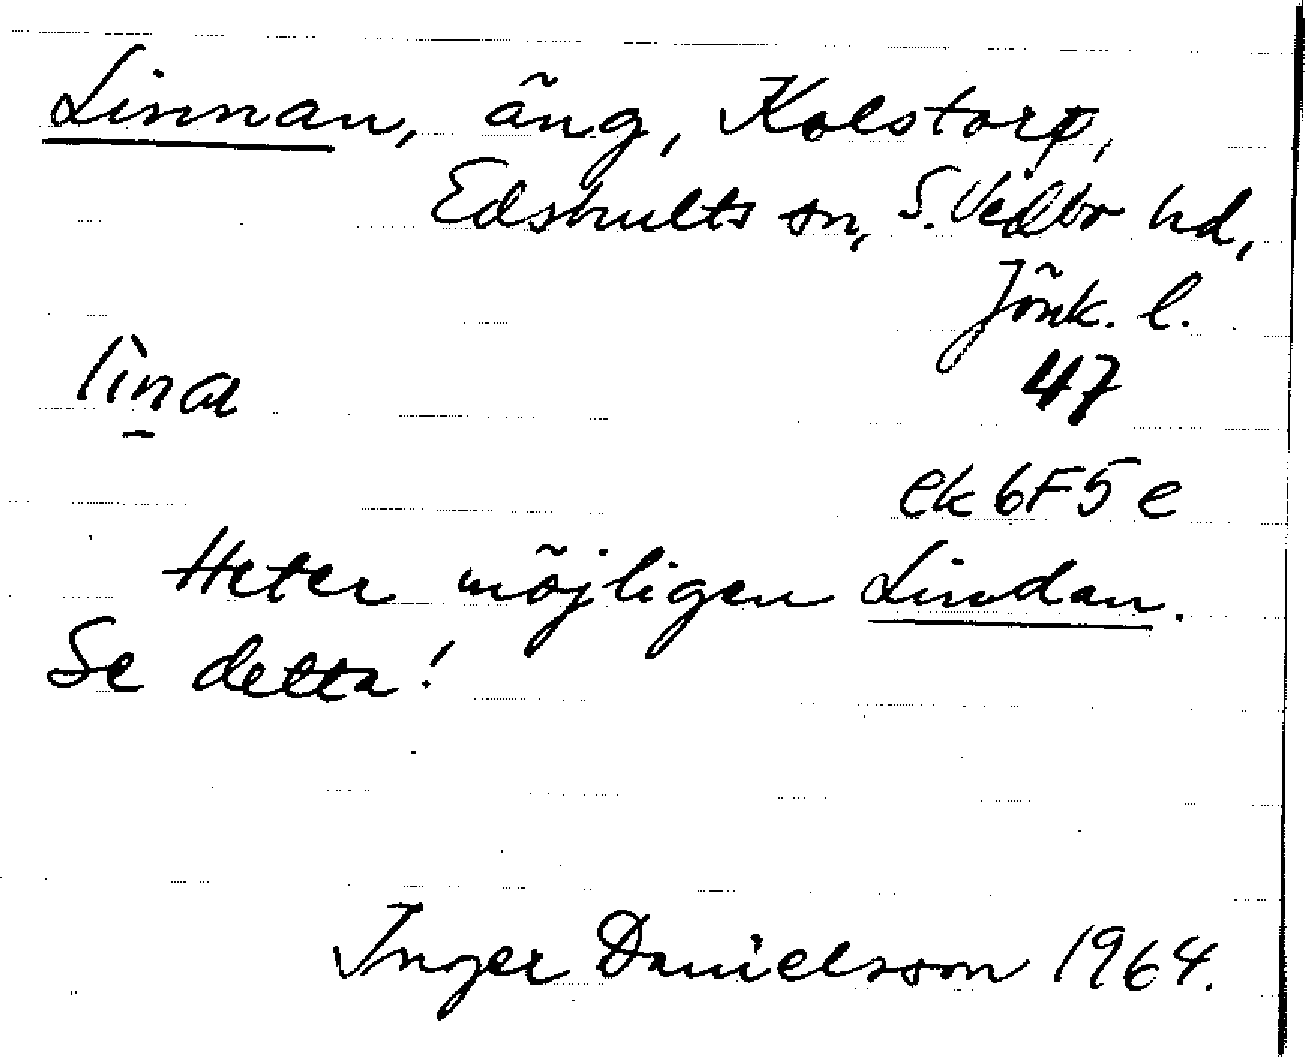 Linnan, äng, Kolstorp,
Edshults sn, S. Vedbo hd,
Jönk. l.
lìn̲a
47
ek 6F5e
Heter möjligen Lindan.
Se detta!
Inger Danielsson 1964.